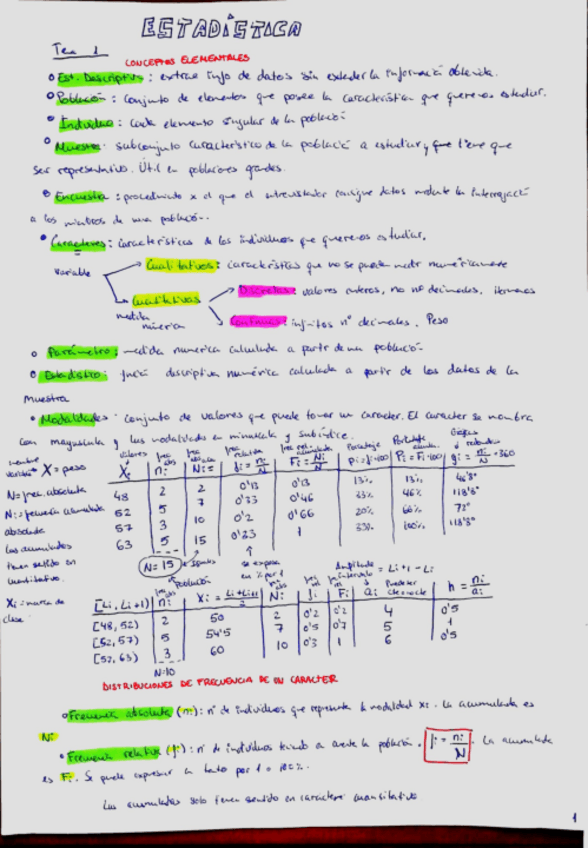 ESTADÍSTICA
Tema 1
CONCEPTOS ELEMENTALES
Est. Descriptiva: extrae info de datos sin exceder la información obtenida.
Población: conjunto de elementos que posee la característica que queremos estudiar.
Individuo: Cada elemento singular de la población
Muestra: subconjunto característico de la población a estudiar y que tiene que
ser representativo. Útil en poblaciones grandes.
Encuesta: procedimiento x el que el entrevistador consigue datos mediante la interrogación
a los miembros de una población.
Caracteres: características de los individuos que queremos estudiar.
Variable
Cualitativos: características que no se pueden medir numéricamente
Cuantitativos
medida numérica
Discretas: valores enteros, no nº decimales. Hermanos
Continuas: infinitos nº decimales. Peso
Parámetro: medida numérica calculada a partir de una población
Estadístico: función descriptiva numérica calculada a partir de los datos de la
muestra
Modalidades: conjunto de valores que puede tomar un caracter. El caracter se nombra
con mayúscula y las modalidades en minúscula y subíndice.
nombre variable X = peso
N = frec. absoluta
Ni = frecuencia acumulada absoluta
Las acumuladas tienen sentido en cuantitativo.
Xi = marca de clase
Xi ni Ni = fi = ni/N Fi = Ni/N pi = fi·100 Pi = Fi·100 gi = ni/N · 360
48 2 2 0'13 0'13 13% 13% 46'8°
52 5 7 0'33 0'46 33% 46% 118'8°
57 3 10 0'2 0'66 20% 66% 72°
63 5 15 0'33 1 33% 100% 118'8°
N = 15
Población
se expresa en % por 1
Amplitud = Li+1 - Li
[Li, Li+1) ni Xi = Ni fi Fi ai h = ni/ai
[48, 52) 2 50 2 0'2 0'2 4 0'5
[52, 57) 5 54'5 7 0'5 0'7 5 1
[57, 63) 3 60 10 0'3 1 6 0'5
N=10
DISTRIBUCIONES DE FRECUENCIA DE UN CARACTER
Frecuencia absoluta (ni): nº de individuos que representa la modalidad xi. La acumulada es
Ni
Frecuencia relativa (fi): nº de individuos teniendo en cuenta la población. fi = ni/N. La acumulada
es Fi. Se puede expresar en tanto por 1 o 100%.
Las acumuladas solo tienen sentido en caracteres cuantitativo
1